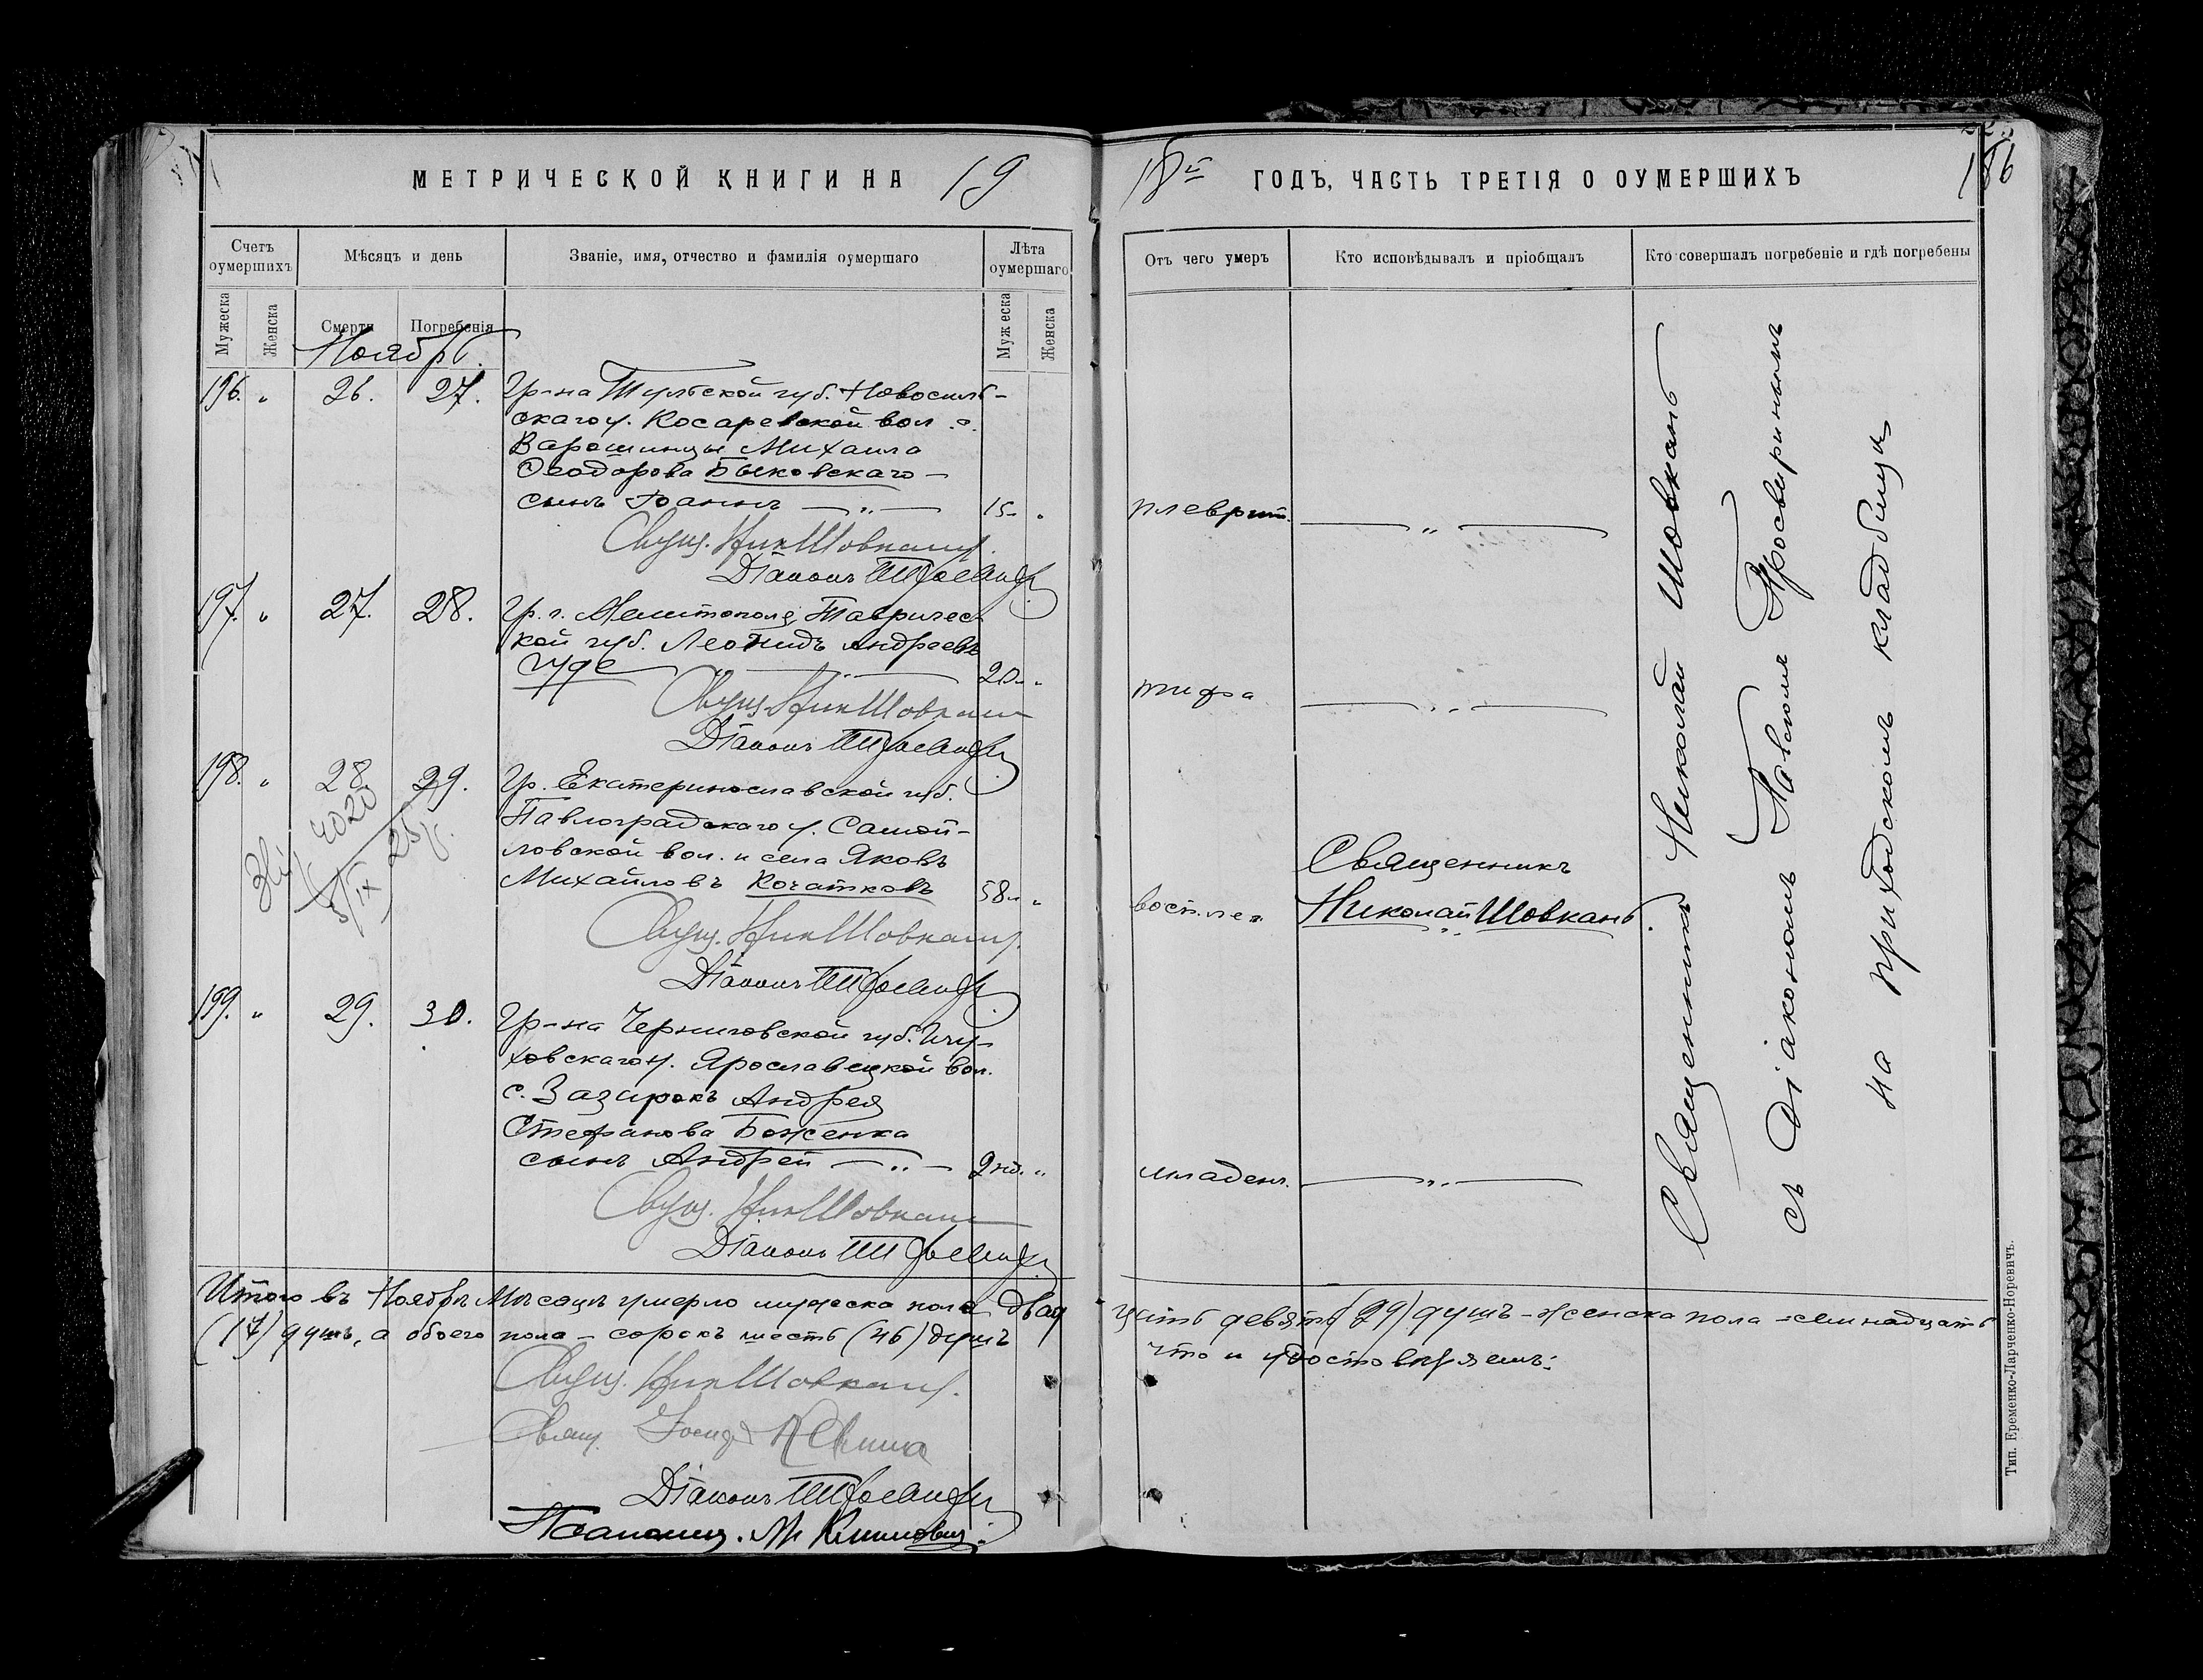 МЕТРИЧЕСКОЙ КНИГИ НА 19
18й ГОДЪ, ЧАСТЬ ТРЕТІЯ О ОУМЕРШИХЪ
186
Счетъ оумершихъ
Мѣсяцъ и день
Званіе, имя, отчество и фамилія оумершаго
Лѣта оумершаго
Мужеска
Женска
Смерти
Погребенія
Мужеска
Женска
Ноябрь.
196. „ 26. 27. Гр-на Тульской губ. Новосиль-
скаго у. Косаревской вол. с.
Михаила
Ѳеодорова Быковскаго —
сынъ Іоаннъ — „ — 15. „
Свящ. Ник Шовкань.
Діаконъ
197. „ 27. 28. Гр. г. Мелитополя Тавричес-
кой губ. Леонидъ Андреевъ
20. „
Свящ. Ник Шовкань
Діаконъ
198. „ 28 29. Гр. Екатеринославской губ.
Павлоградскаго у. Самой-
ловской вол. и села Яковъ
Михайловъ Кочатковъ 58. „
4020
5/IX 25 г.
Свящ. Ник Шовкань.
Діаконъ
199. „ 29. 30. Гр-на Черниговской губ. Глу-
ховскаго у. Ярославецкой вол.
с. Зазирокъ Андрея
Стефанова Боженка
сынъ Андрей — „ — 2 нд. „
Свящ. Ник Шовкань
Діаконъ
Итого въ Ноябрѣ Мѣсяцѣ умерло мужеска пола двад
(17) душъ, а обоего пола — сорокъ шесть (46) душъ
Свящ. Ник Шовкань.
Свящ. Іосифъ
Діаконъ
Псаломщ. М. Климовиц
Отъ чего умеръ
Кто исповѣдывалъ и пріобщалъ
Кто совершалъ погребеніе и гдѣ погребены
плеврит. — „ —
тифа — „ —
Священникъ
восп-лег. Николай Шовкань.
младен. — „ —
Священникъ Николай Шовкань
съ Діакономъ Павломъ Просвиринымъ
на приходскомъ кладбищѣ
цать девять (29) душъ — женска пола — семнадцать
что и удостовѣряемъ:
Тип. Еременко-Ларченко-Норевичъ.